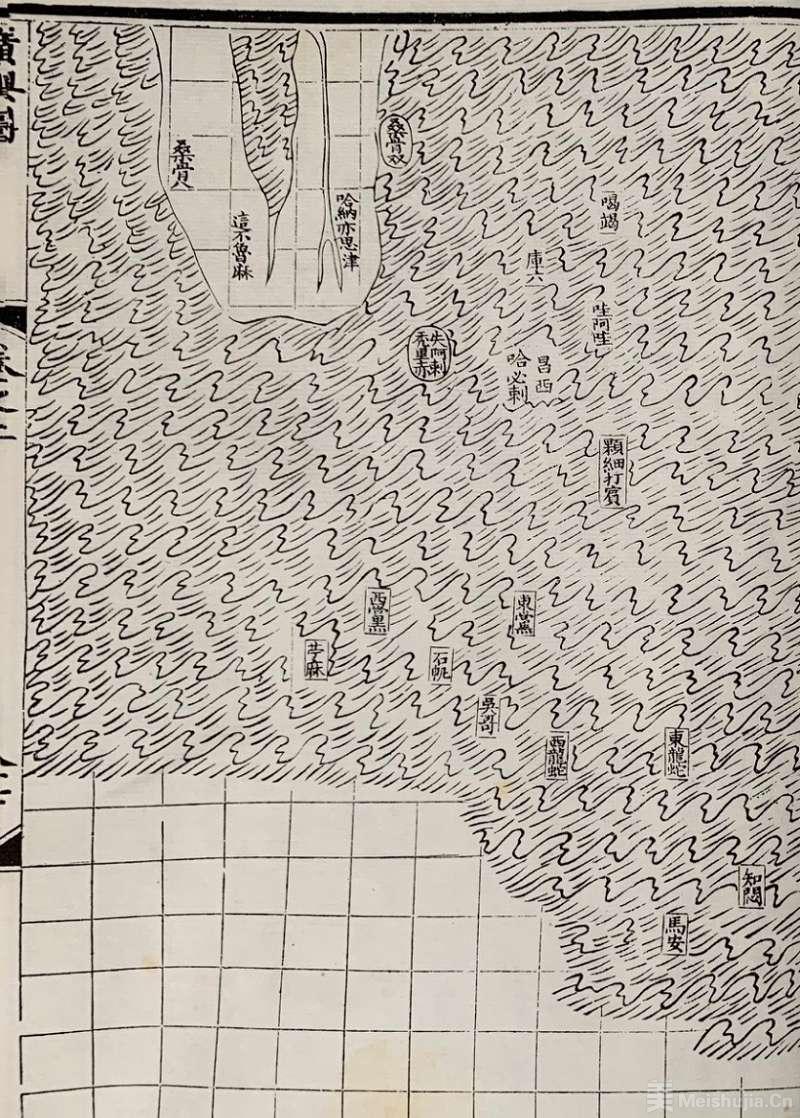 廣輿圖
卷之二
桑骨八
這不魯麻
哈納亦思津
桑骨奴
喝竭
庫六
哇阿哇
失阿剌
禿里亦
昌西
哈必剌
顆細打賓
西黑
東
芋麻
石帆
吳哥
西龍蛇
東龍蛇
知悶
馬安
美 Meishujia.Cn